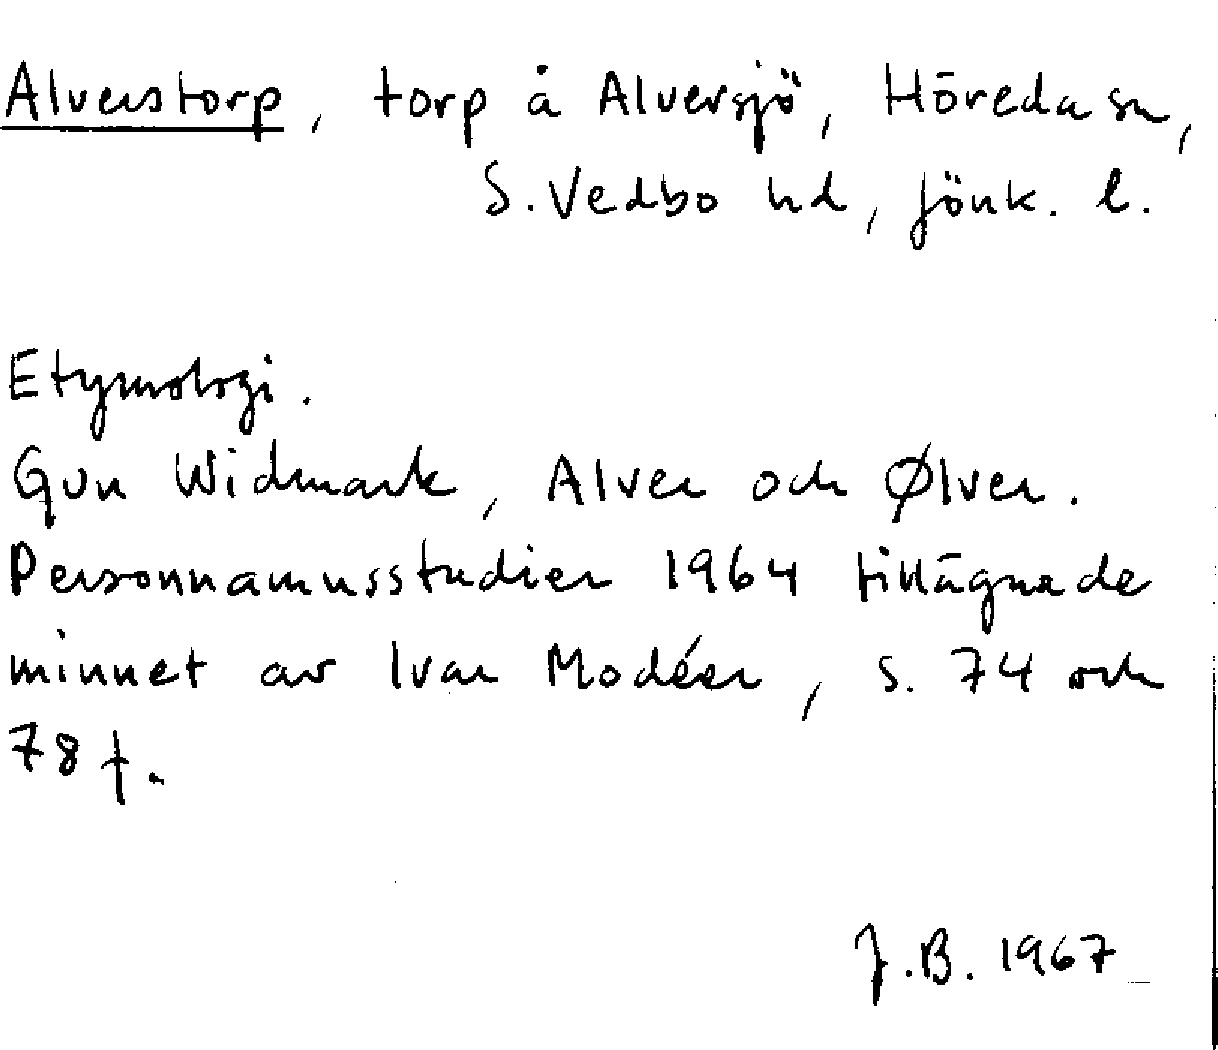 Alverstorp, torp å Alversjö, Höreda sn,
S. Vedbo hd, Jönk. l.
Etymologi.
Gun Widmark, Alver och Ølver.
Personnamnsstudier 1964 tillägnade
minnet av Ivar Modéer, s. 74 och
78 f.
J.B. 1967